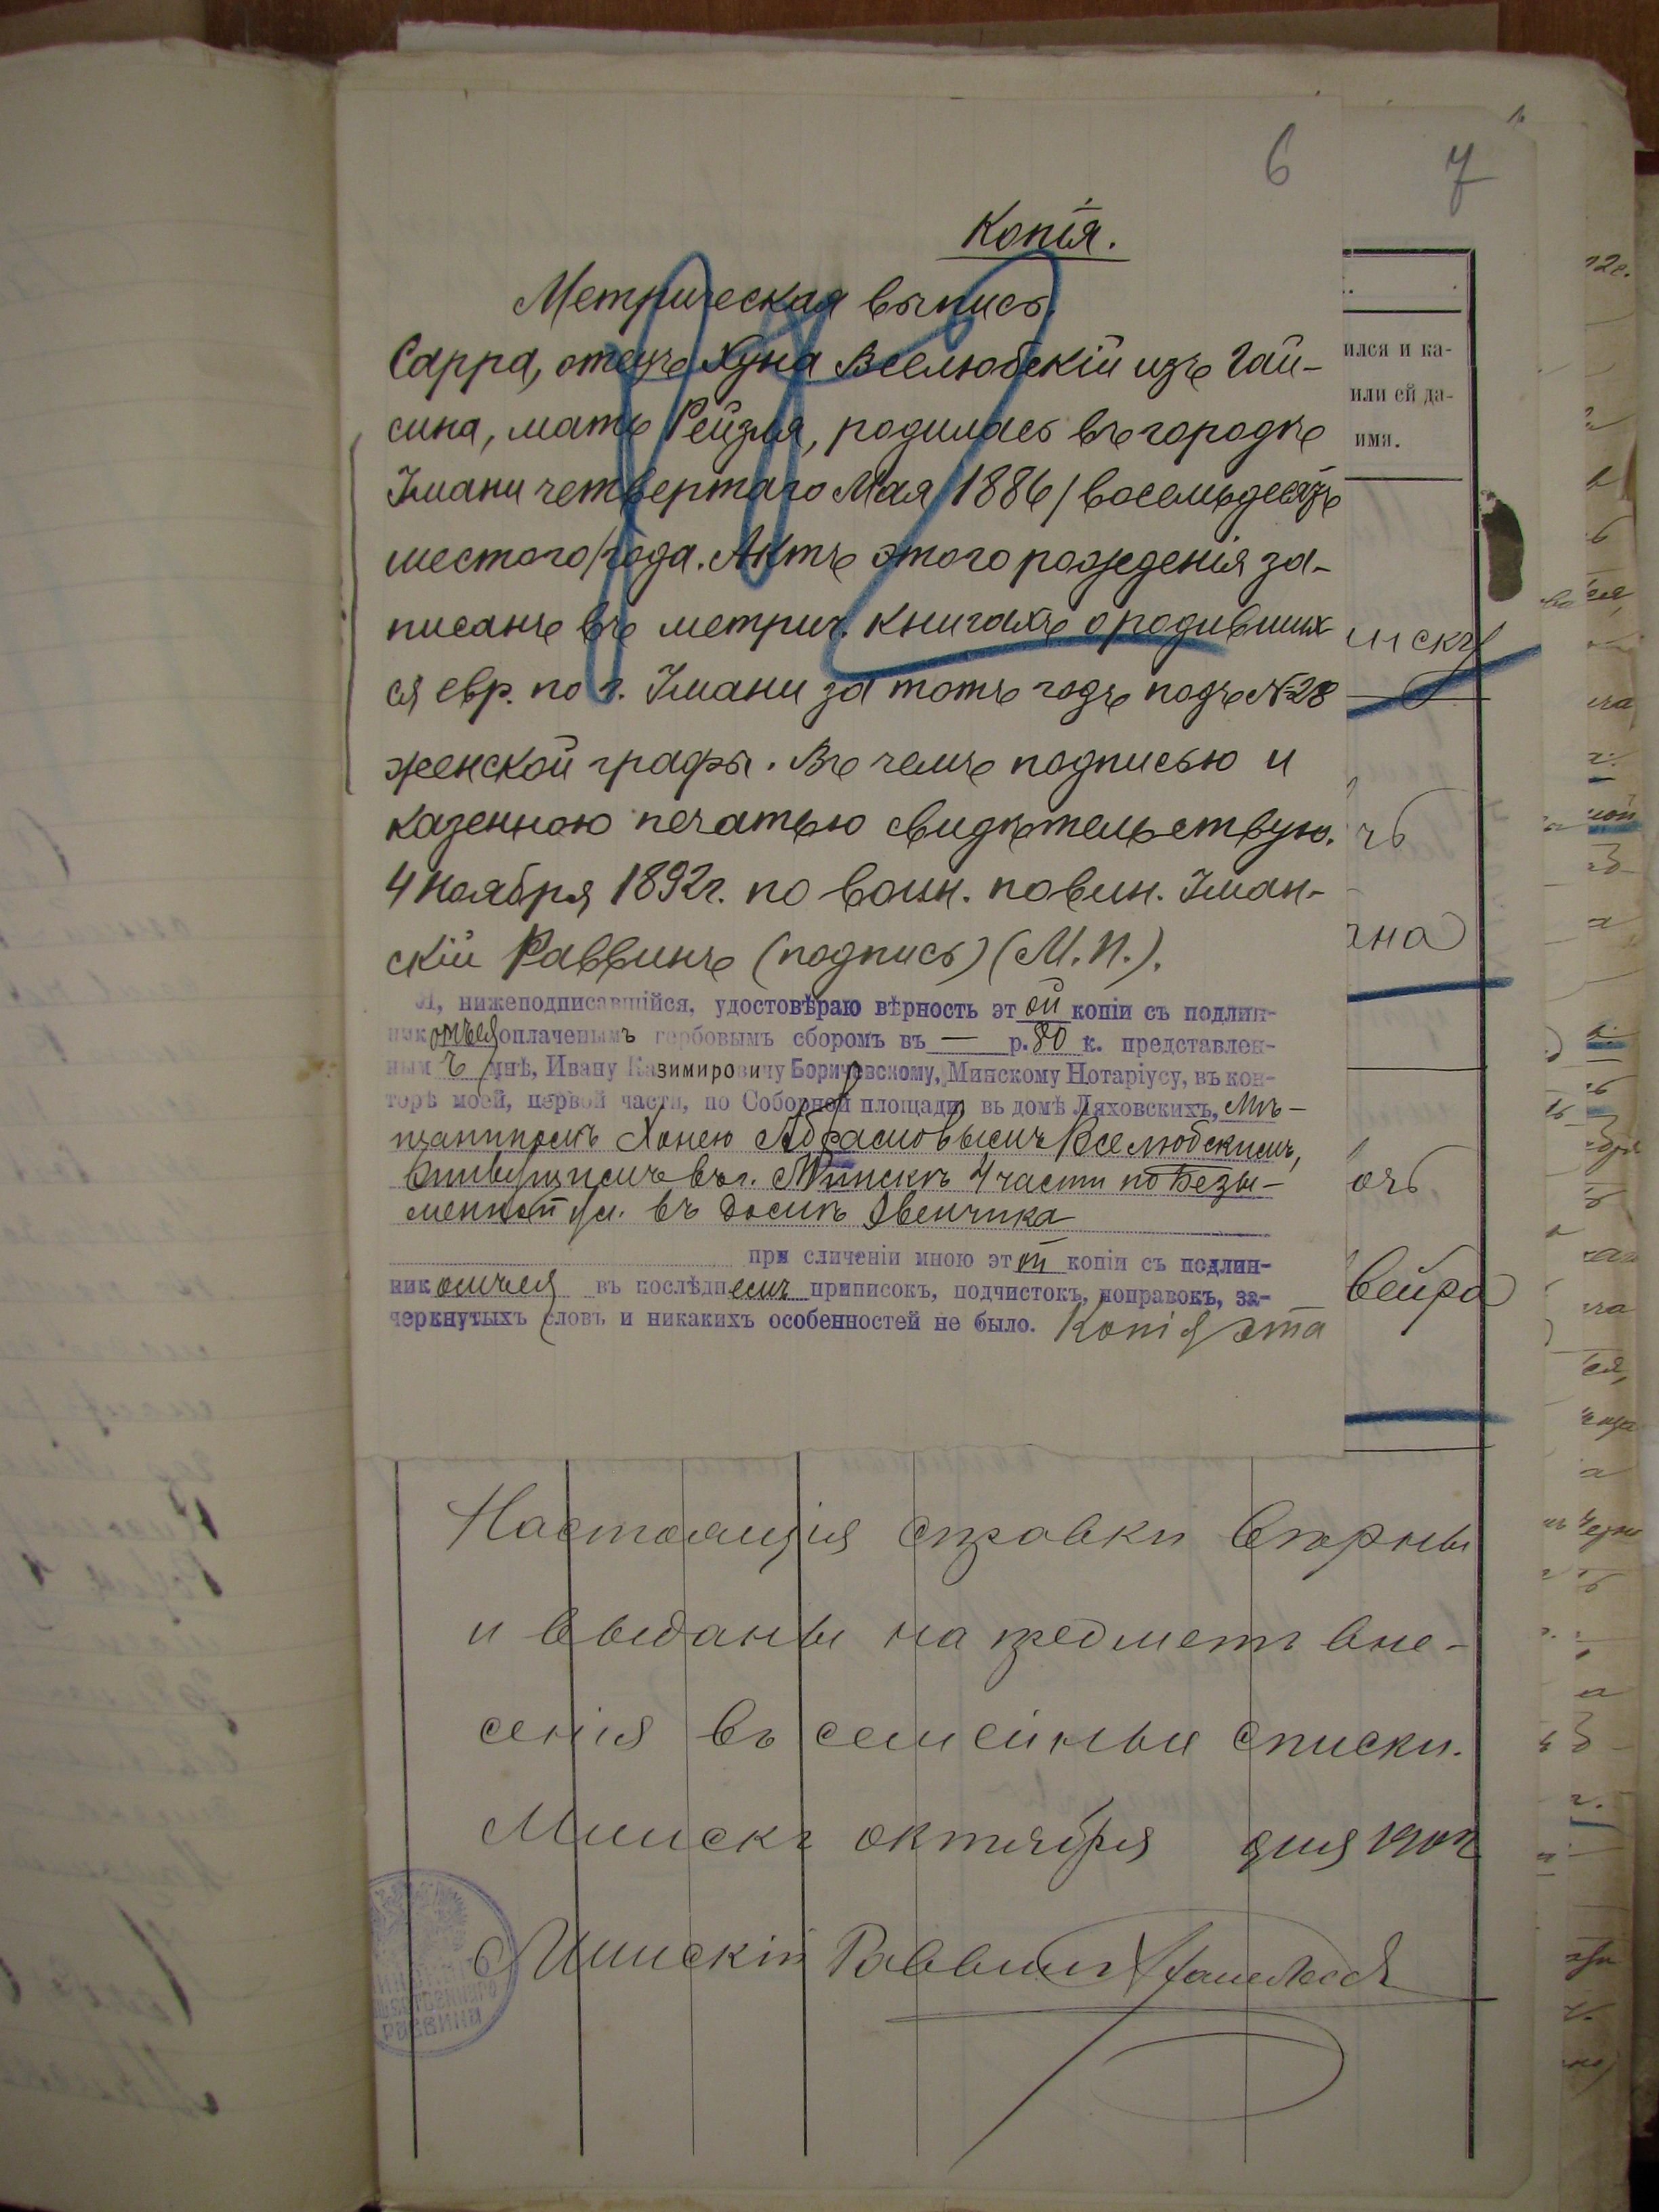 6
7
Копія.
Метрическая выпись.
Сарра, отецъ Хуна Вселюбскій изъ Гай-
сина, мать Рейзля, родилась въ городѣ
Умани четвертаго Мая /1886/ восемьдесятъ
шестого/года. Актъ этого рожденія за-
писанъ въ метрич. книгахъ о родивших-
ся евр. по г. Умани за тотъ годъ подъ №28
женской графы. Въ чемъ подписью и
казенною печатью свидѣтельствую.
4 Ноября 1892г. по воин. повин. Уман-
скій Раввинъ (подпись) (М.П.).
Я, нижеподписавшійся, удостовѣряю вѣрность этой копіи съ подлин-
никомъ ея оплаченымъ гербовымъ сборомъ въ — р. 80 к. представлен-
нымъ мнѣ, Ивану Казимировичу Боричевскому, Минскому Нотаріусу, въ кон-
торѣ моей, первой части, по Соборной площади, въ домѣ Ляховскихъ, Мѣ-
щаниномъ Хонею Абрамовымъ Вселюбскимъ,
живущимъ въ г. Минскѣ 4 части по Безы-
менной ул. въ домѣ Звенчика
при сличеніи мною этой копіи съ подлин-
никомъ ея въ послѣднемъ приписокъ, подчистокъ, поправокъ, за-
черкнутыхъ словъ и никакихъ особенностей не было. Копія эта
ился и ка-
или ей да-
имя.
инскъ
чъ
ана
очь
вейра
Настоящія справки вѣрны
и выданы на предметъ вне-
сенія въ семейные списки.
Минскъ октября дня 190
Минскій Раввинъ
РАВВИНА